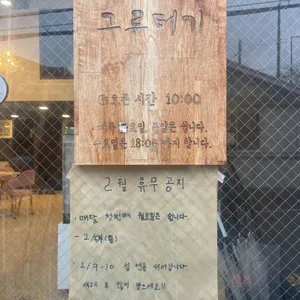 그루터기
오픈 시간 10:00
일요일은 쉽니다.
수요일은 18:00 까지 합니다.
2월 휴무 공지
· 매달 첫번째 월요일은 쉽니다.
- 2/
· 2/9-10 설 연휴 쉬어갑니다.
새해 복 많이 받으세요!!